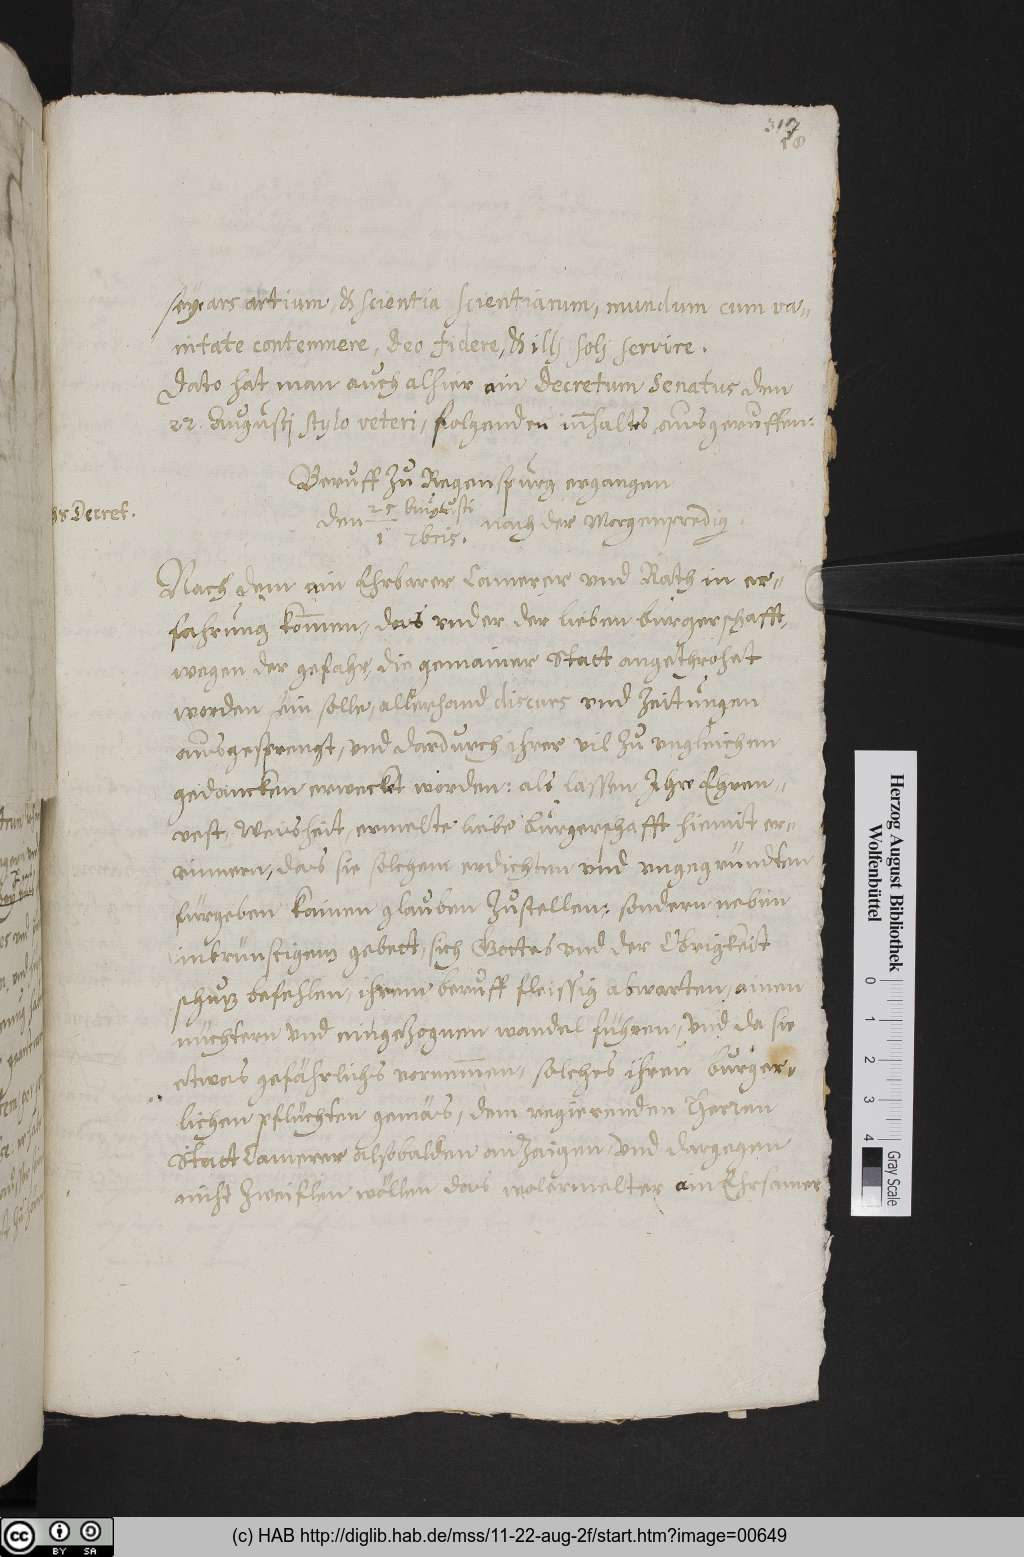 317
18
seye ars artium, & scientia scientiarum, mundum cum va-
nitate contemnere, Deo fidere, & illj solj servire.
Dato hat man auch alhier ain Decretum Senatus den
22. Augustj stylo veteri, folgenden inhalts ausgeruffen:
Beruff zu Regenspurg ergangen
hs Decret.
den 25 Augusti / 1 7bris. nach der Morgenpredig.
Nach dem ain Ehrbarer Camerer vnd Rath in er-
fahrung kommen, das vnder der lieben burgerschafft,
wegen der gefahr, die gemainer Statt angethrohet
worden sein solle, allerhand discurs vnd Zeitungen
ausgesprengt, vnd dardurch ihrer vil zu vngleichen
gedancken erweckt worden: als lassen Ihr Ehren-
vest, Weisheit, ermelte liebe burgerschafft hiemit er-
innern, das sie solchem erdichten vnd vngegründten
fürgeben kainen glauben zustellen: sondern neben
inbrünstigem gebett, sich Gottes vnd der Obrigkeit
schutz befehlen, ihrem beruff fleissig abwarten, ainen
nüchtern vnd eingezognen wandel führen, vnd da sie
etwas gefährlichs vernemmen, solches ihren burger-
lichen pflichten gemäs, dem regierenden Herren
Statt Camerer alsobalden anzaigen, vnd dargegen
nicht zweiflen wöllen das wolermelter ain Ehrsamer
Herzog August Bibliothek
Wolfenbüttel
0 1 2 3 4
Gray Scale
cc BY SA
(c) HAB http://diglib.hab.de/mss/11-22-aug-2f/start.htm?image=00649